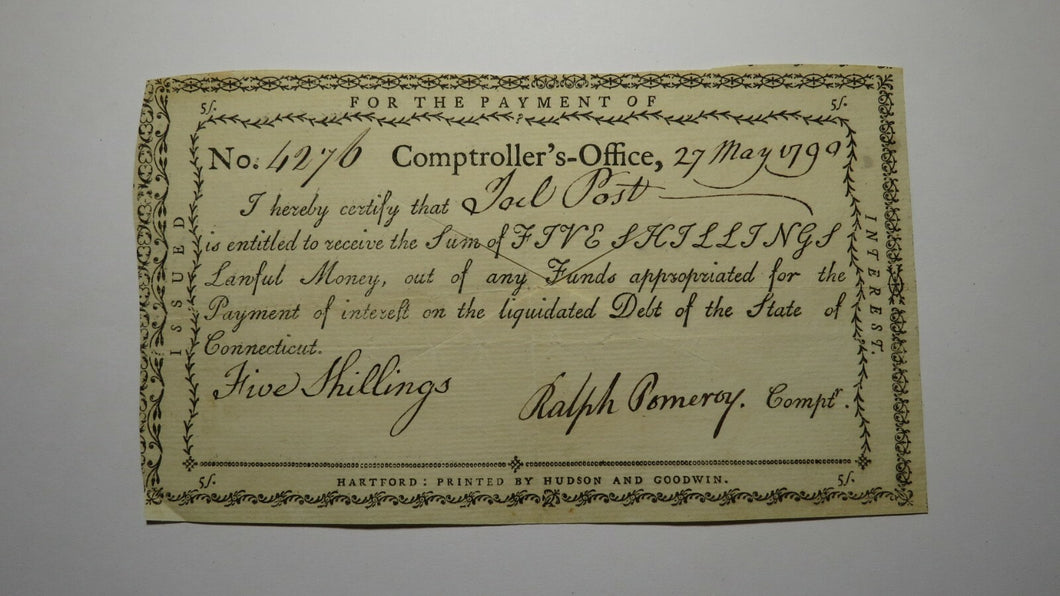 5/. FOR THE PAYMENT OF 5/.
No. 4276 Comptroller's-Office, 27 May 1790
I hereby certify that Joel Post
is entitled to receive the Sum of FIVE SHILLINGS
Lawful Money, out of any Funds appropriated for the
Payment of interest on the liquidated Debt of the State of
Connecticut.
Five Shillings
Ralph Pomeroy. Comptr.
ISSUED
INTEREST.
5/. HARTFORD: PRINTED BY HUDSON AND GOODWIN. 5/.